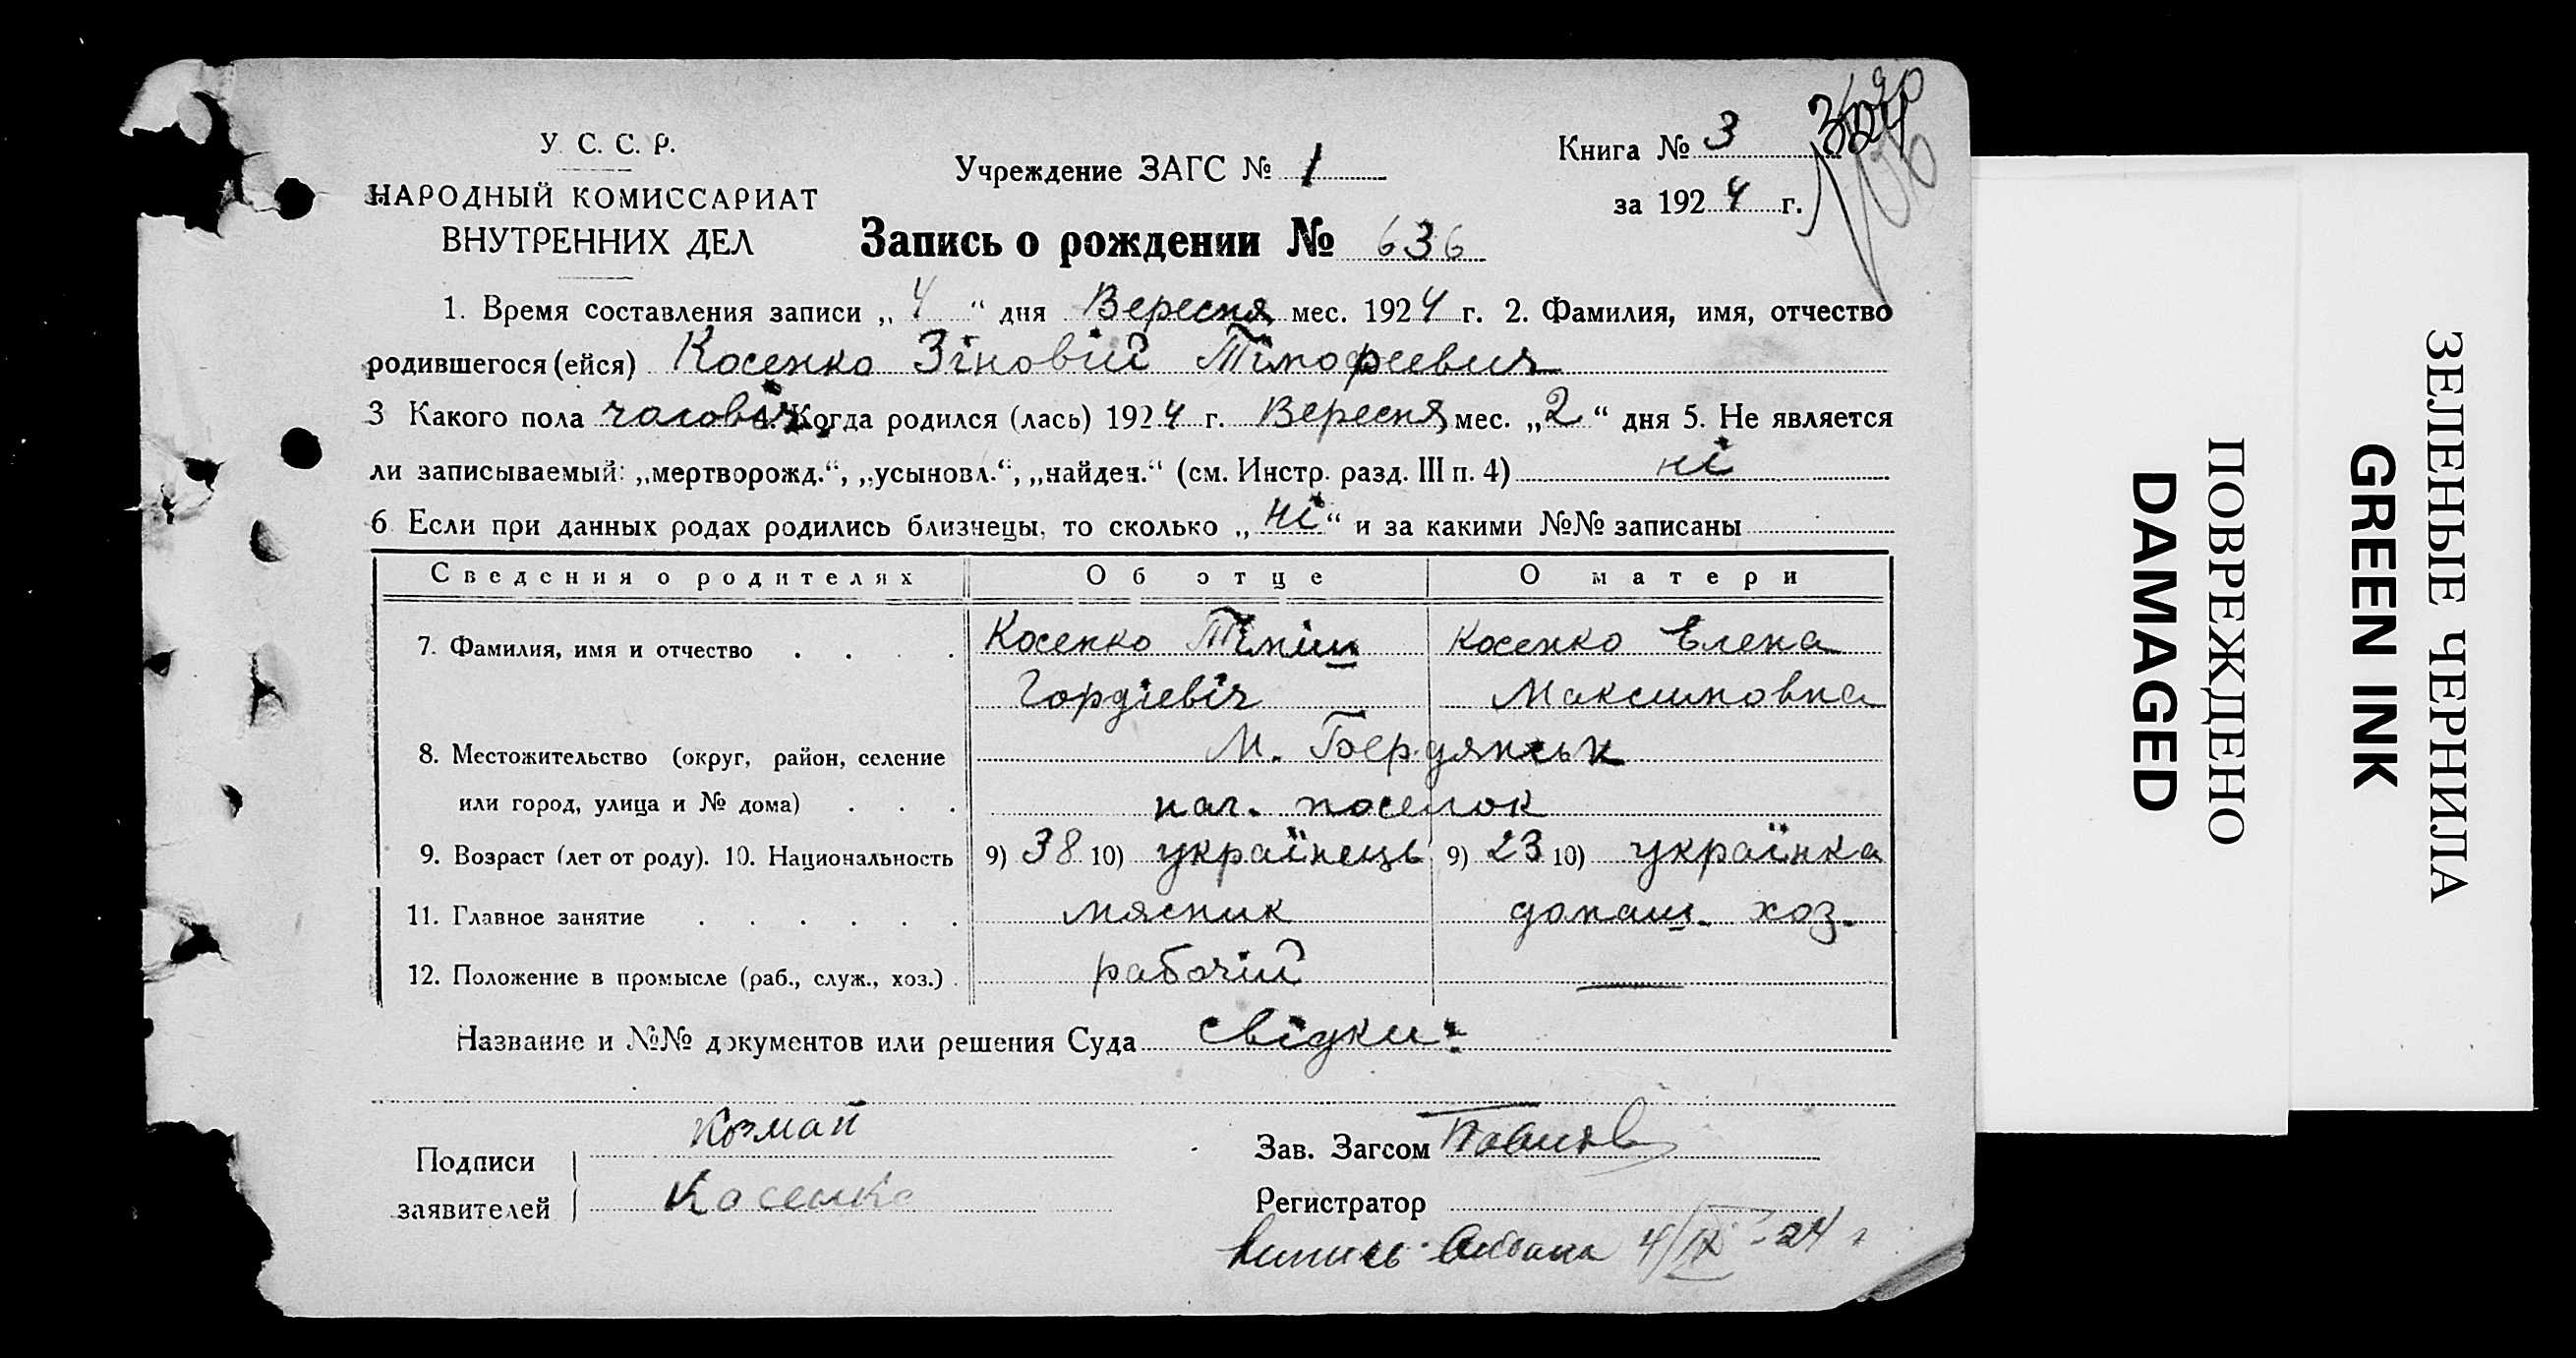 У. С. С. Р.
НАРОДНЫЙ КОМИССАРИАТ
ВНУТРЕННИХ ДЕЛ
Учреждение ЗАГС № 1
Книга № 3
за 1924 г.
Запись о рождении № 636
1. Время составления записи „4“ дня Вересня мес. 1924 г. 2. Фамилия, имя, отчество
родившегося (ейся) Косенко Зіновій Тімофеевич
3 Какого пола чаловіч. 4. Когда родился (лась) 1924 г. Вересня мес. „2“ дня 5. Не является
ли записываемый: „мертворожд.“, „усыновл.“, „найден.“ (см. Инстр. разд. III п. 4) ні
6 Если при данных родах родились близнецы, то сколько „ні“ и за какими №№ записаны
Сведения о родителях Об отце О матери
7. Фамилия, имя и отчество . . . . Косенко Тіміш Косенко Елена
Гордіевіч Максимовна
8. Местожительство (округ, район, селение М. Бердянськ
или город, улица и № дома) . . . наг. поселок
9. Возраст (лет от роду). 10. Национальность 9) 38 10) украінець 9) 23 10) украінка
11. Главное занятие . . . . . . мясник домаш. хоз.
12. Положение в промысле (раб., служ., хоз.) . рабочій —
Название и №№ документов или решения Суда свідки:
Подписи заявителей
Козмай
Косенко
Зав. Загсом
Регистратор
Випись 4/IX-24 г
ПОВРЕЖДЕНО
DAMAGED
ЗЕЛЕНЫЕ ЧЕРНИЛА
GREEN INK